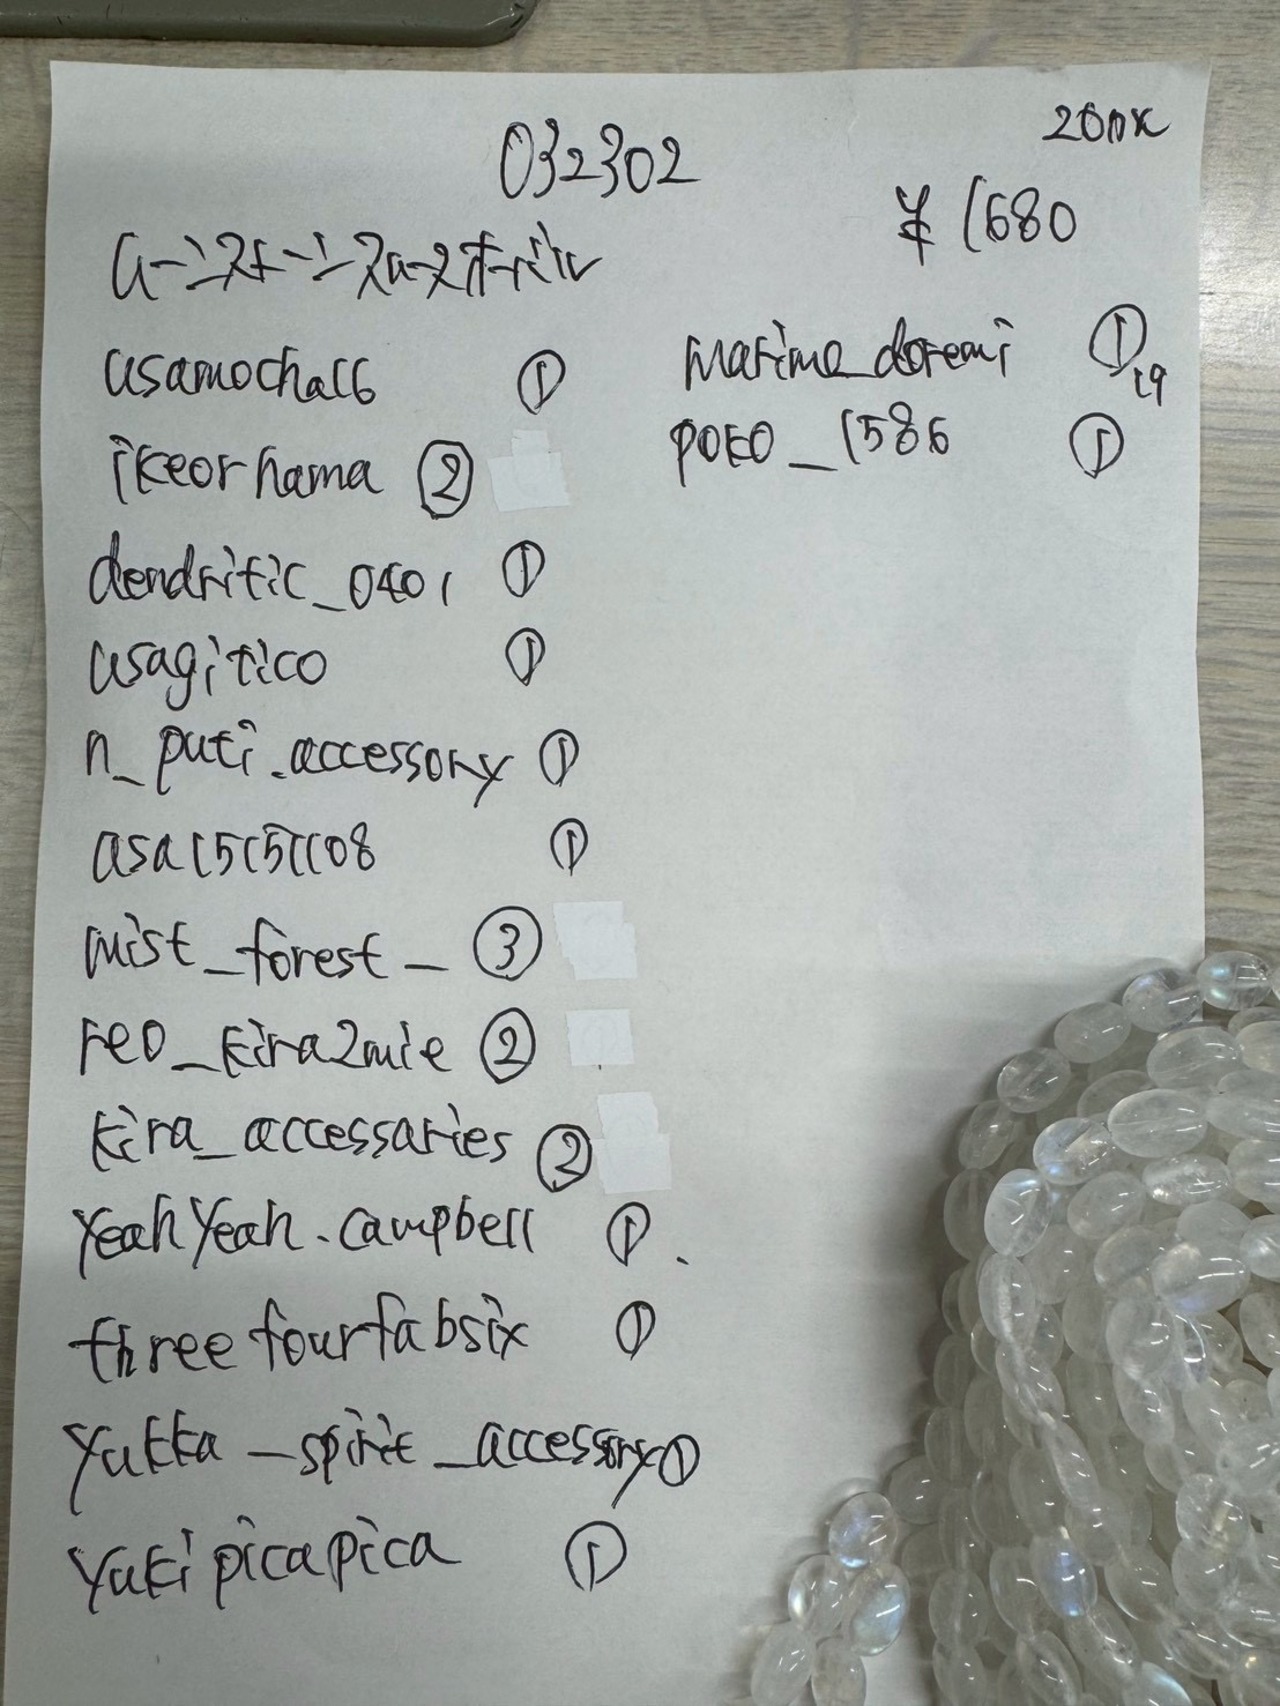 032302
20mx
¥1680
usamocha16 ①
ikeorhama ②
dendritic_0401 ①
usagitico ①
n_puti.accessory ①
asa15151108 ①
mist_forest_ ③
reo_kira2mie ②
kira_accessaries ②
yeahyeah.campbell ①
threefourfabsix ①
yukka_spirit_accessory ①
yukipicapica ①
marimo_doremi ① 19
poko_1586 ①